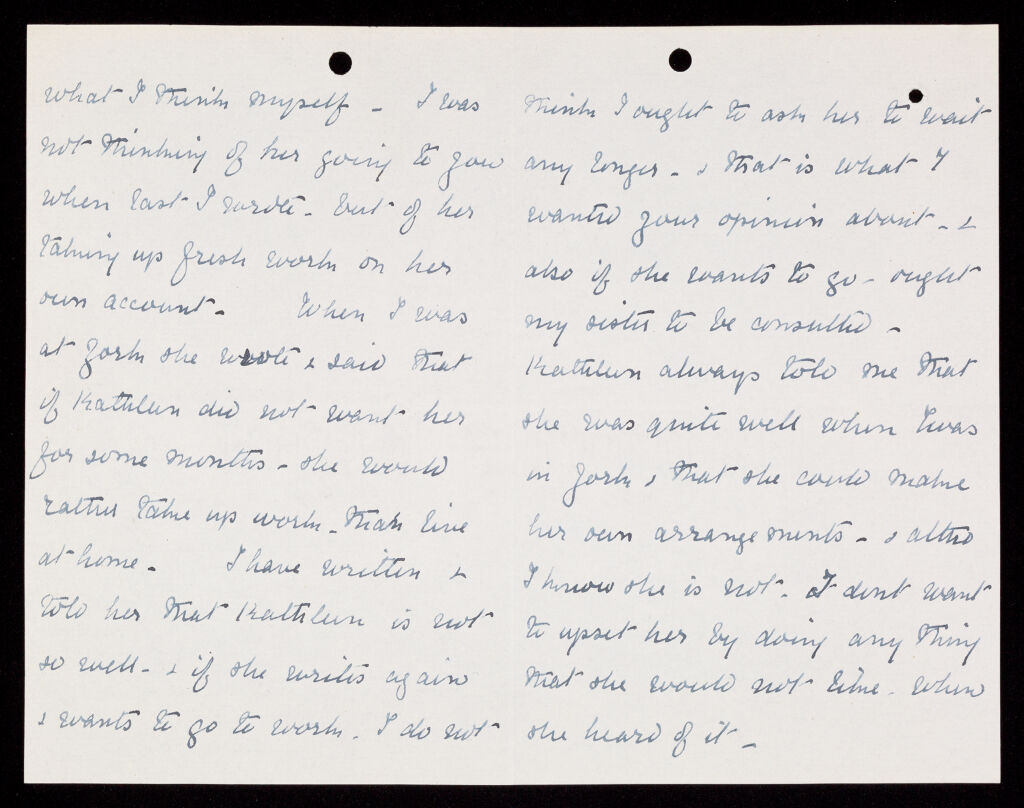 what I think myself - I was
not thinking of her going to you
when last I wrote - but of her
taking up fresh work on her
own account - When I was
at York she wrote & said that
if Kathleen did not want her
for some months - she would
rather take up work - than live
at home - I have written &
told her that Kathleen is not
so well - & if she writes again
& wants to go to work - I do not
think I ought to ask her to wait
any longer - & that is what I
wanted your opinion about - &
also if she wants to go - ought
my sister to be consulted -
Kathleen always told me that
she was quite well when I was
in York & that she could make
her own arrangements - & altho
I know she is not - I dont want
to upset her by doing any thing
that she would not like - when
she heard of it -